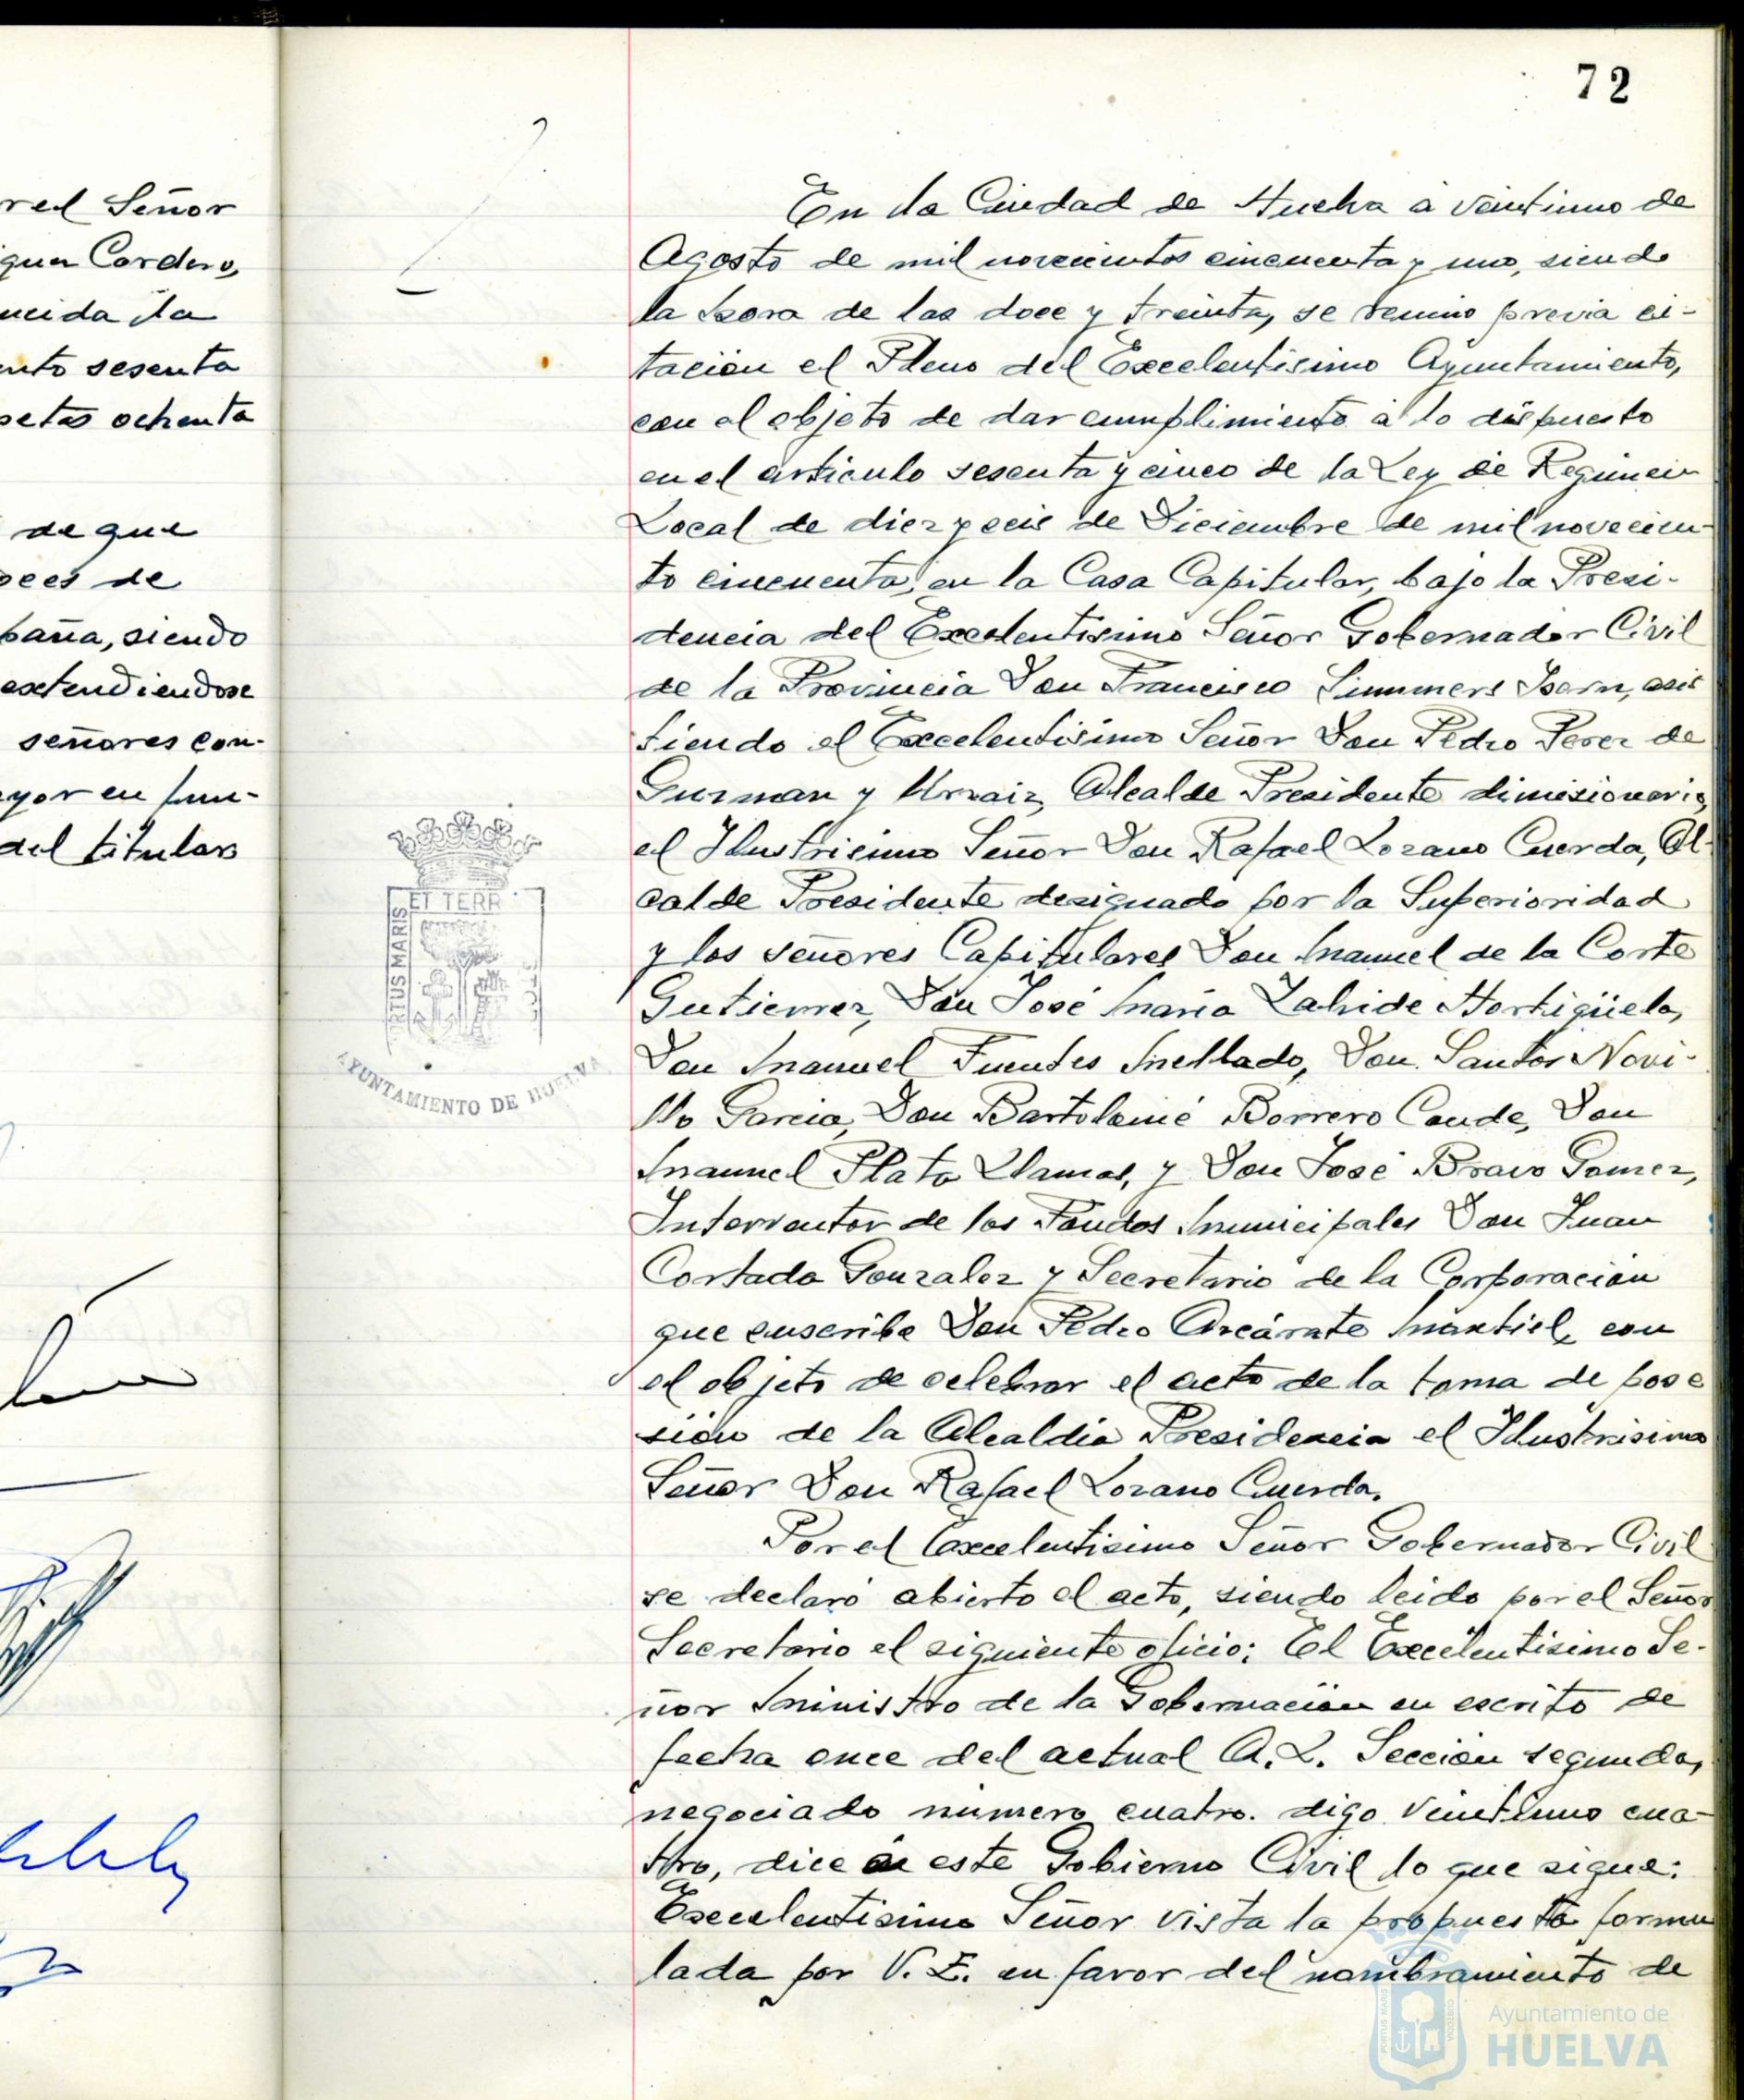 72
rel Señor
Cordero,
la
sesenta
ochenta
de que
de
siendo
extendiendose
señores con-
en fun-
del titular
En la Ciudad de Huelva a veintiuno de
Agosto de mil novecientos cincuenta y uno, siendo
la hora de las doce y treinta, se reunio previa ci-
tación el Pleno del Excelentisimo Ayuntamiento,
con el objeto de dar cumplimiento a lo dispuesto
en el articulo sesenta y cinco de la Ley de Regimen
Local de diez y seis de Diciembre de mil novecien-
to cincuenta, en la Casa Capitular, bajo la Presi-
dencia del Excelentisimo Señor Gobernador Civil
de la Provincia Don Francisco Summers Isern, asis
tiendo el Excelentisimo Señor Don Pedro Perez de
Guzman y Urzaiz, Alcalde Presidente dimisionario,
el Ilustrisimo Señor Don Rafael Lozano Cuerda, Al-
calde Presidente designado por la Superioridad
y los señores Capitulares Don Manuel de la Corte
Gutierrez, Don José Maria Zalvide Hortigüela,
Don Manuel Fuentes Mellado, Don Santos Novi-
llo Garcia, Don Bartolomé Borrero Conde, Don
Manuel Plata Llamas, y Don José Bravo Gomez,
Interventor de los Fondos Municipales Don Juan
Cortada Gonzalez y Secretario de la Corporación
que suscribe Don Pedro Arcárate Montiel, con
el objeto de celebrar el acto de la toma de pose
sión de la Alcaldia Presidencia el Ilustrisimo
Señor Don Rafael Lozano Cuerda.
Por el Excelentisimo Señor Gobernador Civil
se declaró abierto el acto, siendo leido por el Señor
Secretario el siguiente oficio: El Excelentisimo Se-
ñor Ministro de la Gobernación en escrito de
fecha once del actual A.L. Sección segunda,
negociado numero cuatro. digo veintiuno cua-
tro, dice a este Gobierno Civil lo que sigue:
Excelentisimo Señor vista la propuesta formu
lada por V. E. en favor del nombramiento de
ET TERR
RTUS MARIS
AYUNTAMIENTO DE HUELVA
Ayuntamiento de
HUELVA